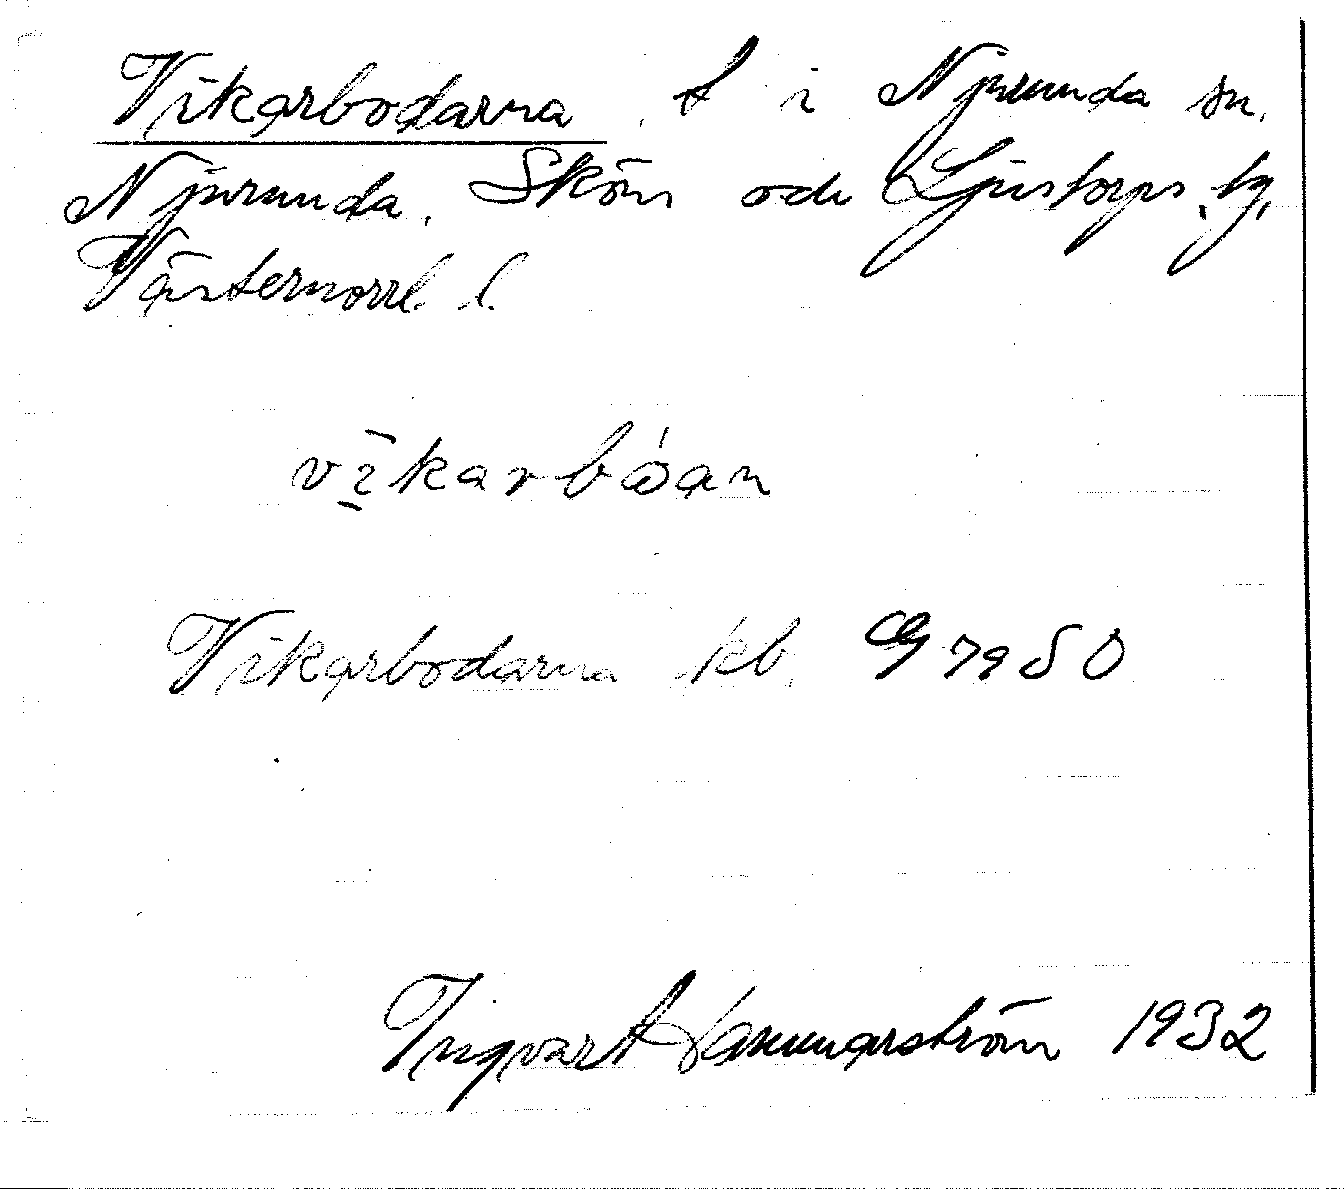 Vikarbodarna, f i Njurunda sn,
Njurunda, Sköns och Ljustorps tg,
Västernorrl. l.
vikarbóan
Vikarbodarna kb. 7950
Ingvar Hammarström 1932